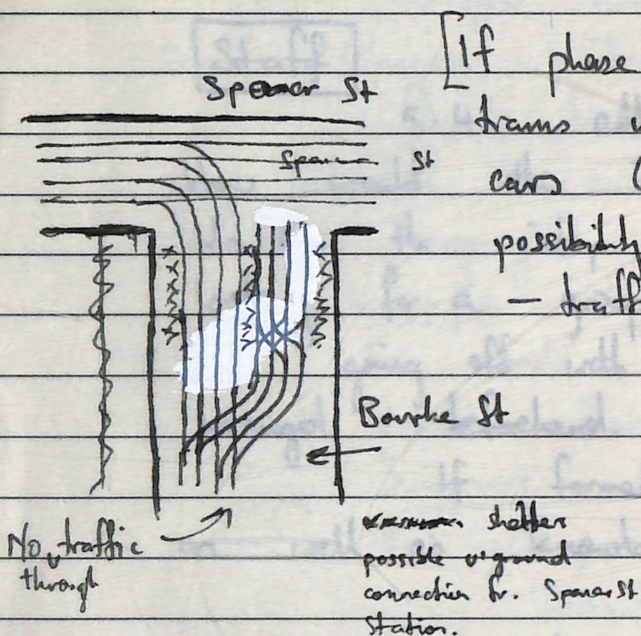 [If phase
Spencer St
trams
Spencer St
cars (
possibility
— traff
Bourke St
No traffic
through
shelter
possible u'ground
connection fr. Spencer St
Station.